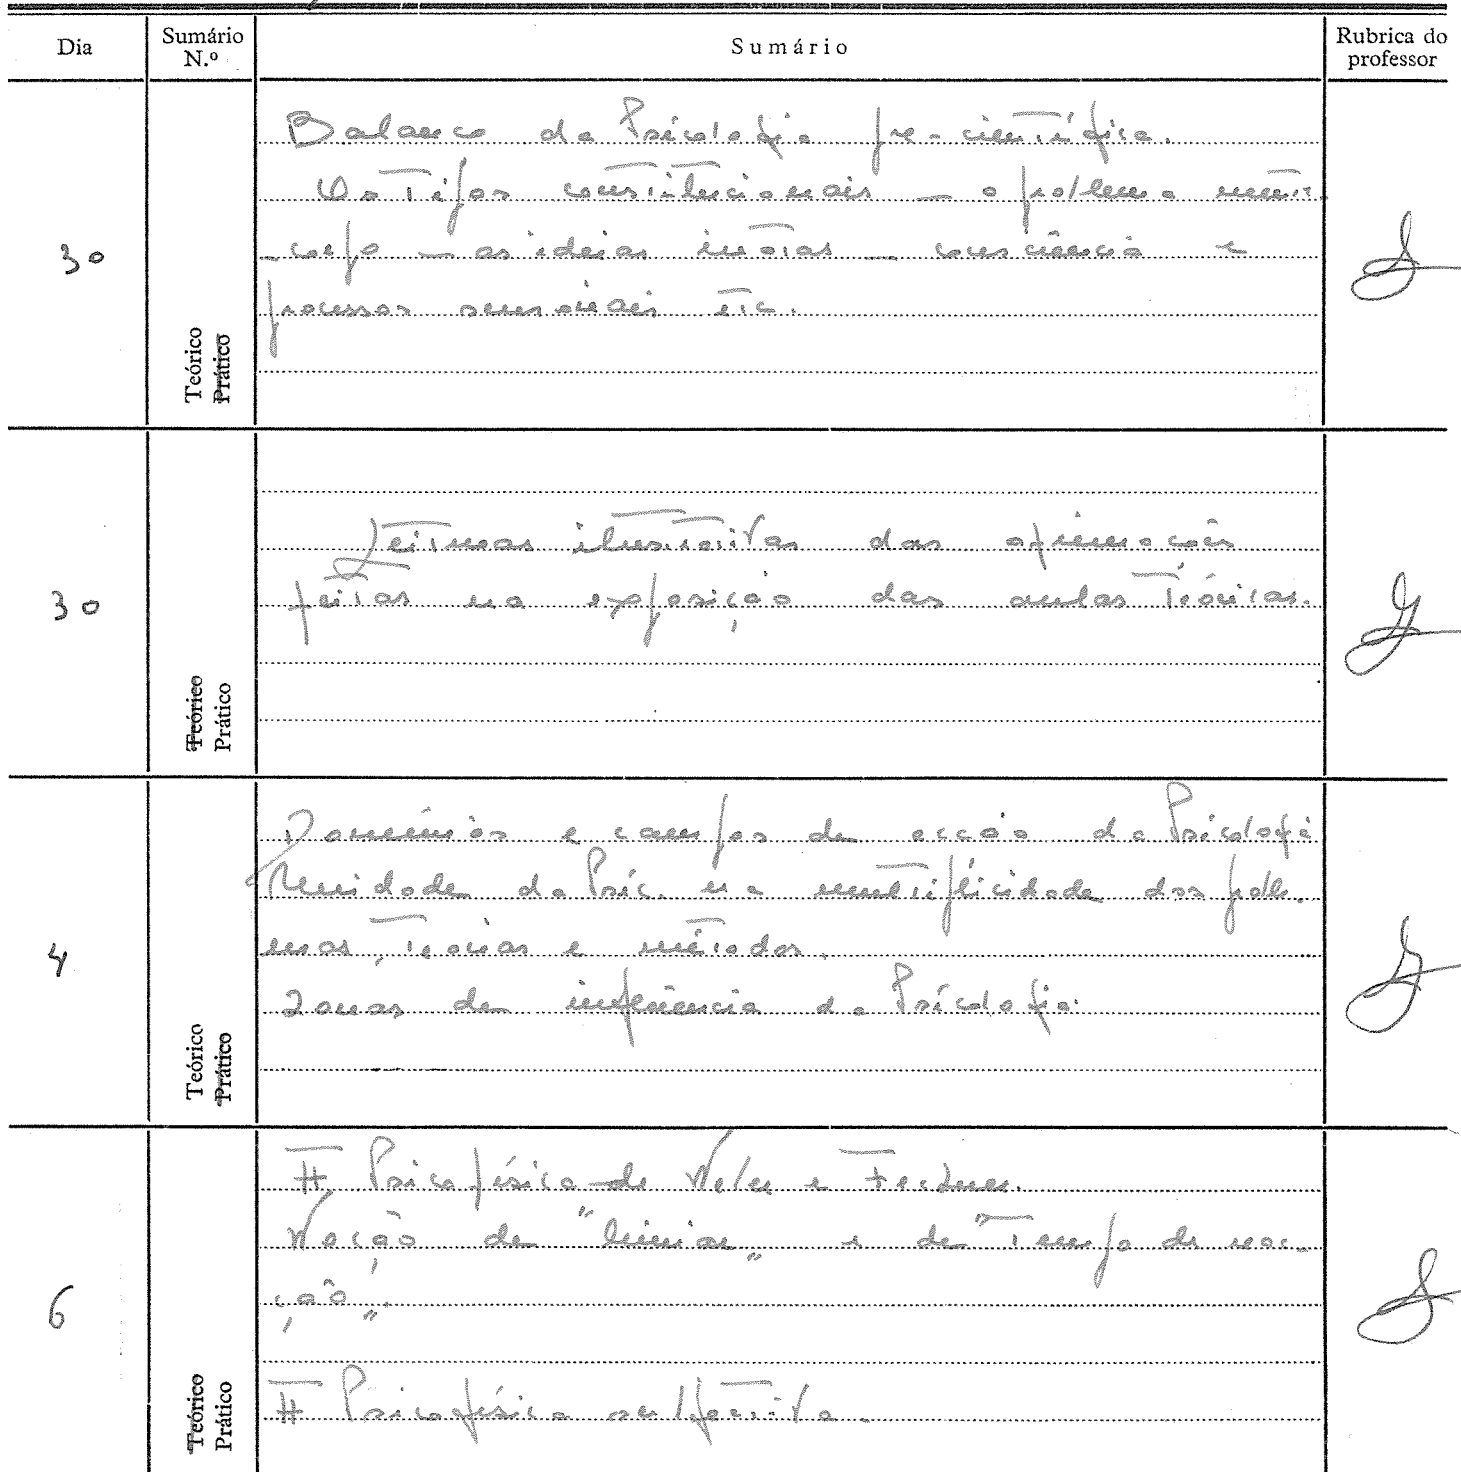 Dia
Sumário N.º
Sumário
Rubrica do professor
30
Teórico
Prático
Balanço da Psicologia pre-científica.
Os Tipos constitucionais – o problema mente
-corpo – as ideias inatas – consciência e
processos sensoriais etc.
30
Teórico
Prático
Leituras ilustrativas das afirmações
feitas na exposição das aulas Teóricas.
4
Teórico
Prático
Domínios e campos de acção da Psicologia
Unidade da Psic. na multiplicidade dos proble-
mas, teorias e métodos.
Zonas de influência da Psicologia.
6
Teórico
Prático
A Psicofísica de Weber e Fechner.
Noção de "limiar" e de "Tempo de reac-
ção".
A Psicofísica subjectiva.